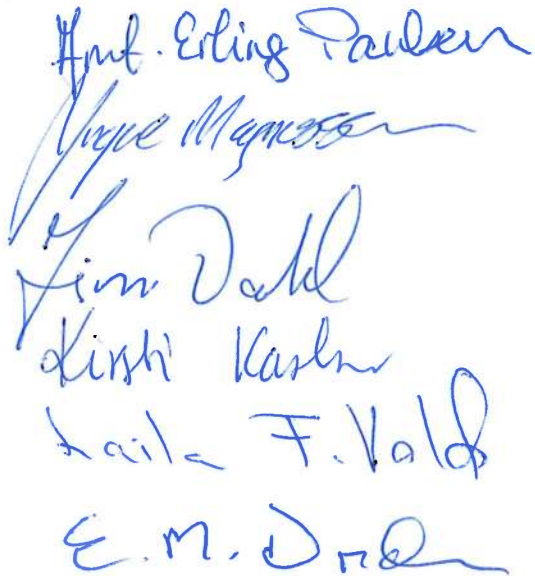 Arnt-Erling Paulsen
Yngve Magnussen
Finn Dahl
Kirsti Karlsen
Laila F. Vold
E. M.